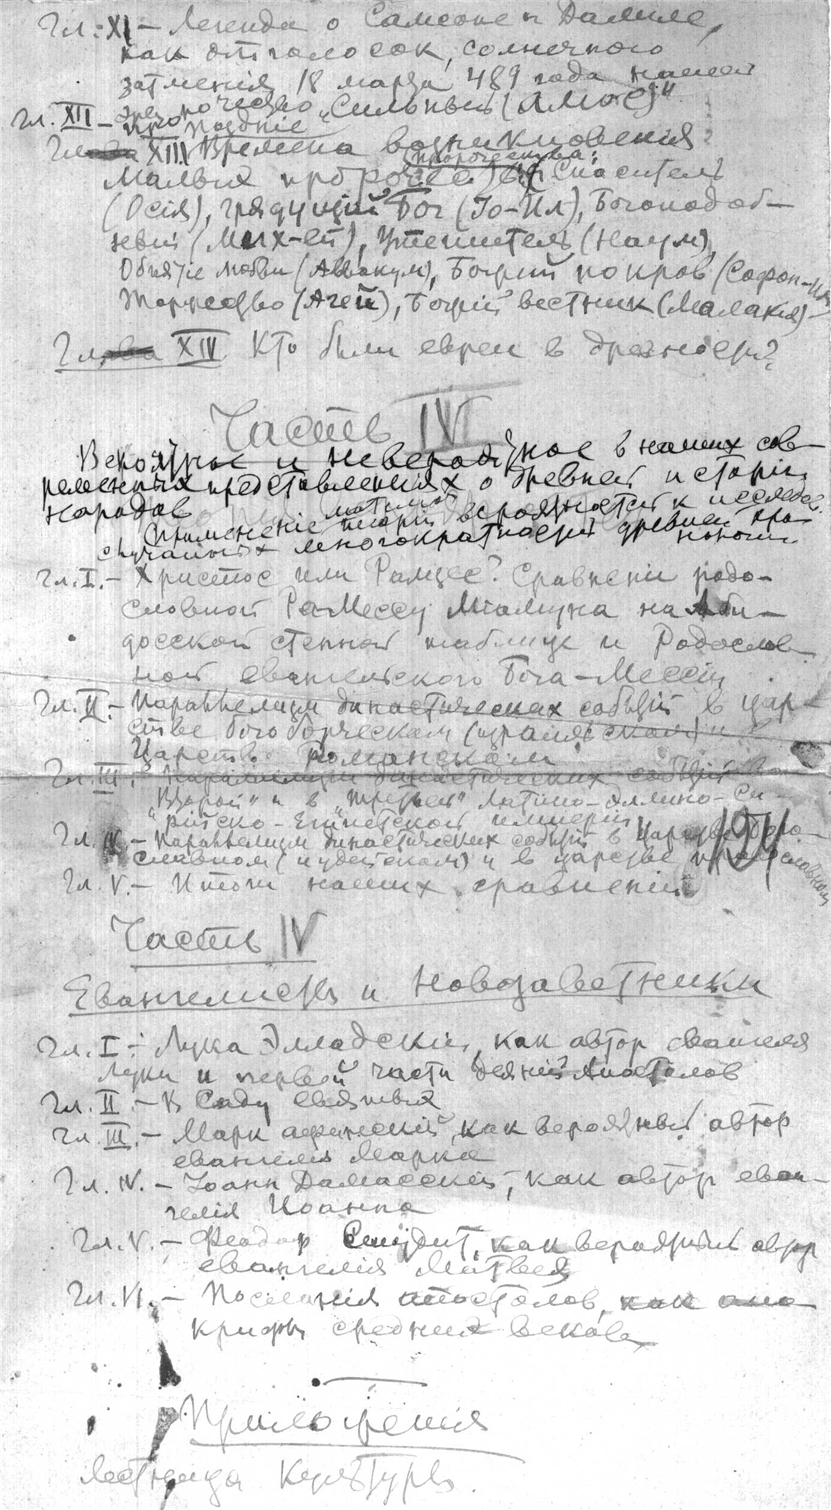 Гл. XI – Легенда о Самсоне и Далиле,
как отголосок солнечного
затмения 18 марта 489 года нашей
Гл. XII – пророчество „Сильный (Амос)“
Позднiе
Глава XIII Времена возникновения
пророчества:
малых Спаситель
(Осiя), грядущий Бог (Io-Ил), Богоподоб-
ный (Мих-ей), Утешитель (Наум),
Объятiе любви (Аввакум), Божий покров (Софон-ия)
Торжество (Агей), Божiй вестник (Малахiя) –
Глава XIV Кто были евреи в древности?
Часть IV
Вероятное и невероятное в наших сов-
ременных представлениях о древней исторiи
народов
Применение теорiи вероятностей к исследов.
случайност многократности древней хро-
нологии
Гл. I. – Христос или Рамзес? Сравненiе родо-
словной Рамессу Мiамуна на Аби-
досской стенной таблице и Родослов-
ной евангельского Бога-Мессiи
Гл. II – Параллелизм династических событiй в цар-
стве богоборческом (израильском) и
Царстве Романском
Гл. III. Параллелизм династических событiй во
„Второй“ и в „Третьей“ Латино-Эллино-Си-
рийско-Египетской империи
Гл. IV. – Параллелизм династических событiй в Царстве Бого-
славном (иудейском) и в царстве православном
194
Гл. V. – Итоги наших сравненiй
Часть IV
Евангелисты и Новозаветники
Гл. I – Лука Элладскiй, как автор евангелiя
Луки и первой части Деянiй Апостолов
Гл. II – К Саду святых
Гл. III – Марк афинскiй, как вероятный автор
евангелiя Марка
Гл. IV. – Iоанн Дамаскiй, как автор еван-
гелiя Иоанна
Гл. V. – Феодор Студит, как вероятный автор
евангелiя Матвея
Гл. VI. – Посланiя апостолов, как апо-
крифы средних веков
Приложенiя
Лестница Культуры.